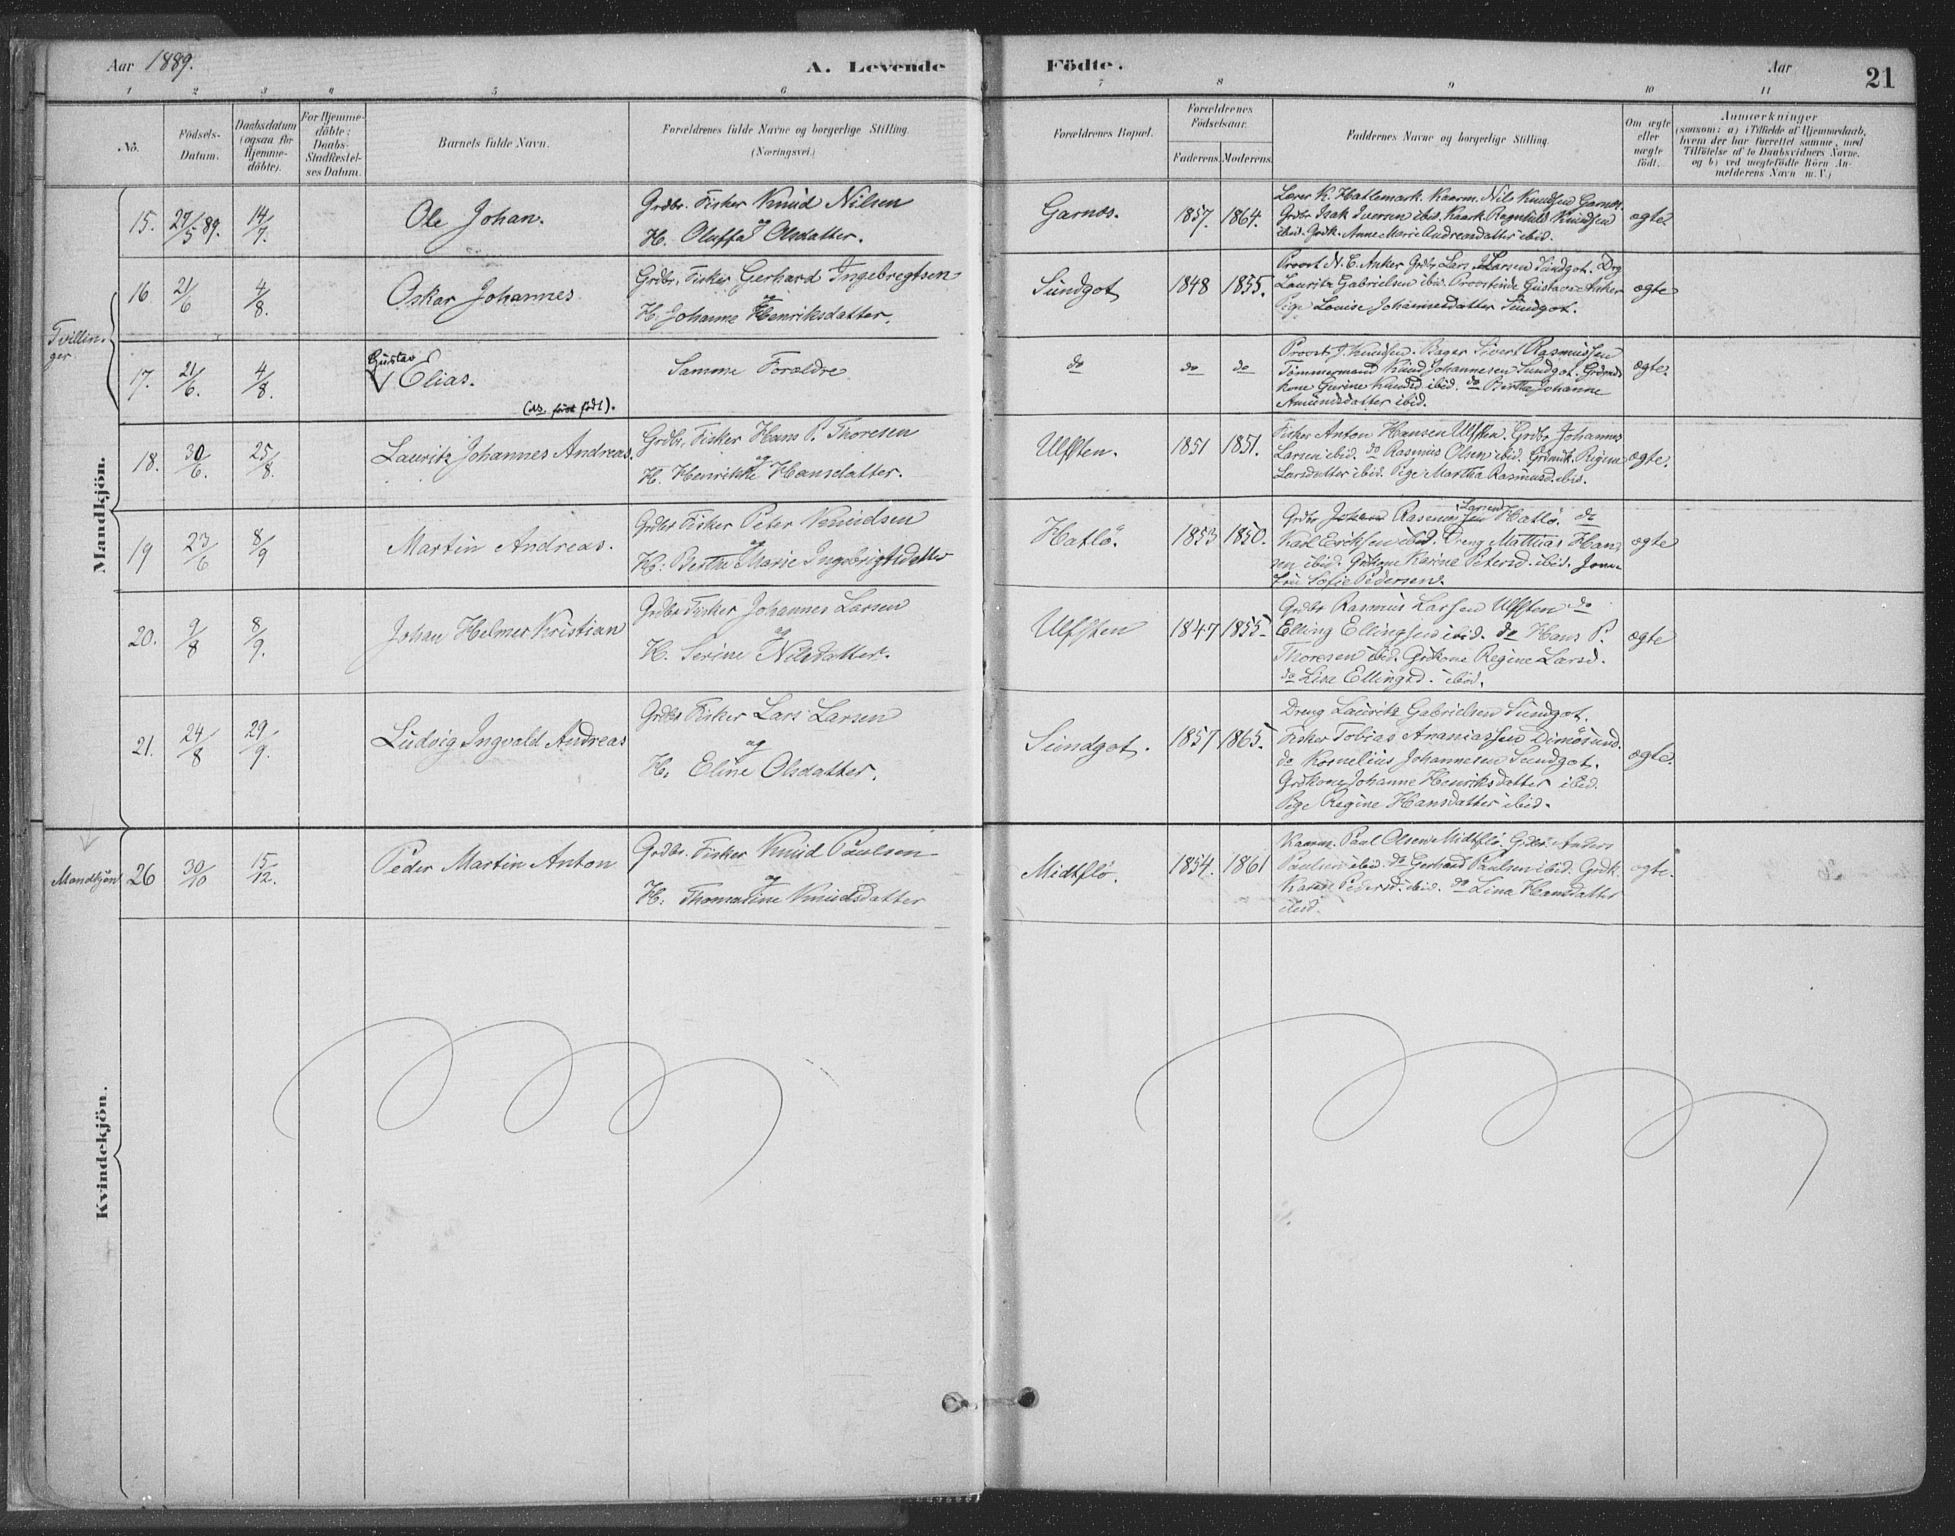 Aar 1889.
A. Levende
Födte.
Aar
21
1 2 3 4 5 6 7 8 9 10 11
No.
Födsels-
Datum.
Daabsdatum
(ogsaa for
Hjemme-
döbte).
For Hjemme-
döbte:
Daabs-
Stadfæstel-
ses Datum.
Barnets fulde Navn.
Forældrenes fulde Navne og borgerlige Stilling.
(Næringsvei.)
Forældrenes Bopæl.
Forældrenes
Födselsaar.
Faderens. Moderens.
Faddernes Navne og borgerlige Stilling.
Om ægte
eller
uægte
födt.
Anmærkninger
(saasom: a) i Tilfælde af Hjemmedaab,
hvem der har forrettet samme, med
Tilföielse af to Daabsvidners Navne,
og b) ved uægtefödte Börn An-
melderens Navn m. V.)
Mandkjön.
15. 27/5 89. 14/7. Ole Johan.
Grdbr. Fisker Knud Nilsen
og
H. Oluffa Olsdatter.
Garnæs. 1857. 1864.
Lærer K. Hatlemark. Kaarm. Nils Knudsen Garnæs.
Grdbr Isak Iversen ibid. Kaark. Ragnhild Knudsen
ibid. Grdk. Anne Marie Andreasdatter ibid.
ægte.
Tvillin-
ger
16 21/6 4/8. Oskar Johannes
Grdbr. Fisker Gerhard Ingebregtsen
og
H. Johanne Henriksdatter.
Sundgot 1848 1855.
Provst N. C. Anker Grdbr. Lars J. Larsen Sundgot. Drg
Lauritz Gabrielsen ibid. Provstinde Gustava Anker
Pige Louise Johannesdatter Sundgot.
ægte
17. 21/6. 4/8. Gustav
Elias.
(NB. först födt).
Samme Forældre
do do do
Provst J. Knudsen. Bager Sivert Rasmussen
Tömmermand Knud Johannesen Sundgot. Grdmds
kone Gurine Knudsd ibid. do Berthe Johanne
Amundsdatter ibid.
ægte.
18. 30/6. 25/8. Lauritz Johannes Andreas.
Grdbr. Fisker Hans P. Thoresen
og
H. Henrikke Hansdatter.
Ulfsten. 1851 1851.
Fisker Anton Hansen Ulfsten. Grdbr Johannes
Larsen ibid. do Rasmus Olsen ibid. Grdmdk. Regine
Larsdatter ibid. Pige Martha Rasmusd. ibid.
ægte.
19 23/6 8/9 Martin Andreas.
Grdbr Fisker Peter Knudsen
og
H. Berthe Marie Ingebrigtsdatter
Hatlö. 1853 1850.
Grdbr Johan Rasmus Larsen Hatlö. do
Karl Eriksen ibid. Dreng Mathias Han-
sen ibid. Grdkone Karine Petersd. ibid. Jom-
fru Sofie Pedersen.
ægte
20. 9/8 8/9. Johan Helmer Kristian
Grdbr Fisker Johannes Larsen
og
H. Serine Nilsdatter.
Ulfsten 1847 1855.
Grdbr Rasmus Larsen Ulfsten do
Elling Ellingsen ibid. do Hans P.
Thoresen ibid. Grdkone Regine Larsd.
do Lise Ellingsd. ibid.
ægte
21. 24/8 29/9. Ludvig Ingvald Andreas
Grdbr Fisker Lars Larsen
og
H. Eline Olsdatter.
Sundgot. 1857 1865.
Dreng Lauritz Gabrielsen Sundgot.
Fisker Tobias Ananiassen Dimösund.
do Kornelius Johannesen Sundgot.
Grdkone Johanne Henriksdatter ibid.
Pige Regine Hansdatter ibid.
ægte.
Mandkjön
26 30/10 15/12. Peder Martin Anton
Grdbr. Fisker Knud Paulsen
og
H. Thomasine Knudsdatter
Midtflö. 1854. 1861
Kaarm. Paul Olsen Midtflö. Grdbr Anders
Paulsen ibid. do Gerhard Paulsen ibid. Grdk.
Karen Pedersd. ibid. do Lina Hansdatter
ibid.
ægte.
Kvindekjön.